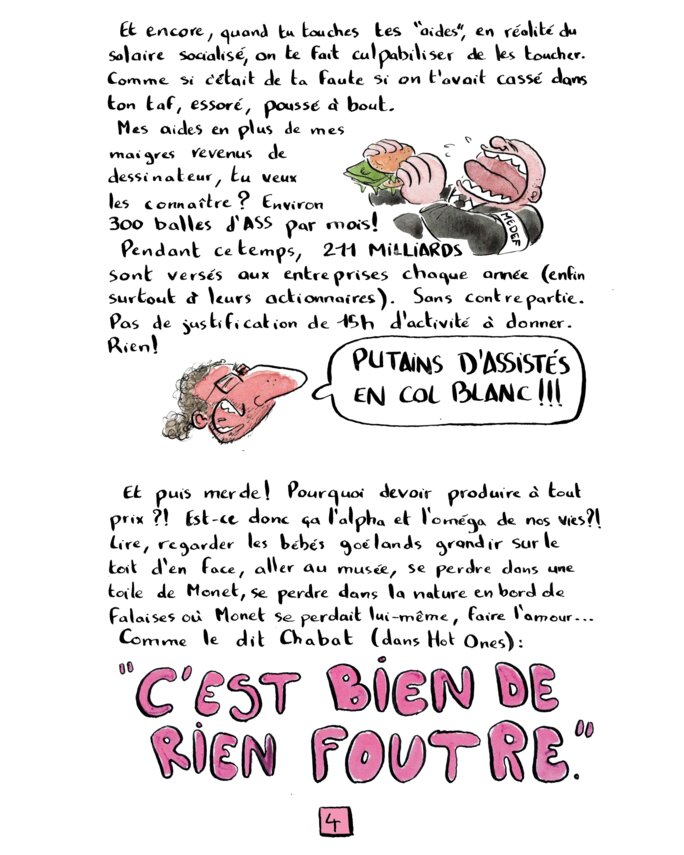 Et encore, quand tu touches tes "aides", en réalité du
salaire socialisé, on te fait culpabiliser de les toucher.
Comme si c'était de ta faute si on t'avait cassé dans
ton taf, essoré, poussé à bout.
Mes aides en plus de mes
maigres revenus de
dessinateur, tu veux
les connaître ? Environ
300 balles d'ASS par mois!
MEDEF
Pendant ce temps, 211 MILLIARDS
sont versés aux entreprises chaque année (enfin
surtout à leurs actionnaires). Sans contrepartie.
Pas de justification de 15h d'activité à donner.
Rien!
PUTAINS D'ASSISTÉS
EN COL BLANC!!!
Et puis merde! Pourquoi devoir produire à tout
prix ?! Est-ce donc ça l'alpha et l'oméga de nos vies?!
Lire, regarder les bébés goélands grandir sur le
toit d'en face, aller au musée, se perdre dans une
toile de Monet, se perdre dans la nature en bord de
falaises où Monet se perdait lui-même, faire l'amour...
Comme le dit Chabat (dans Hot Ones):
"C'EST BIEN DE
RIEN FOUTRE."
4